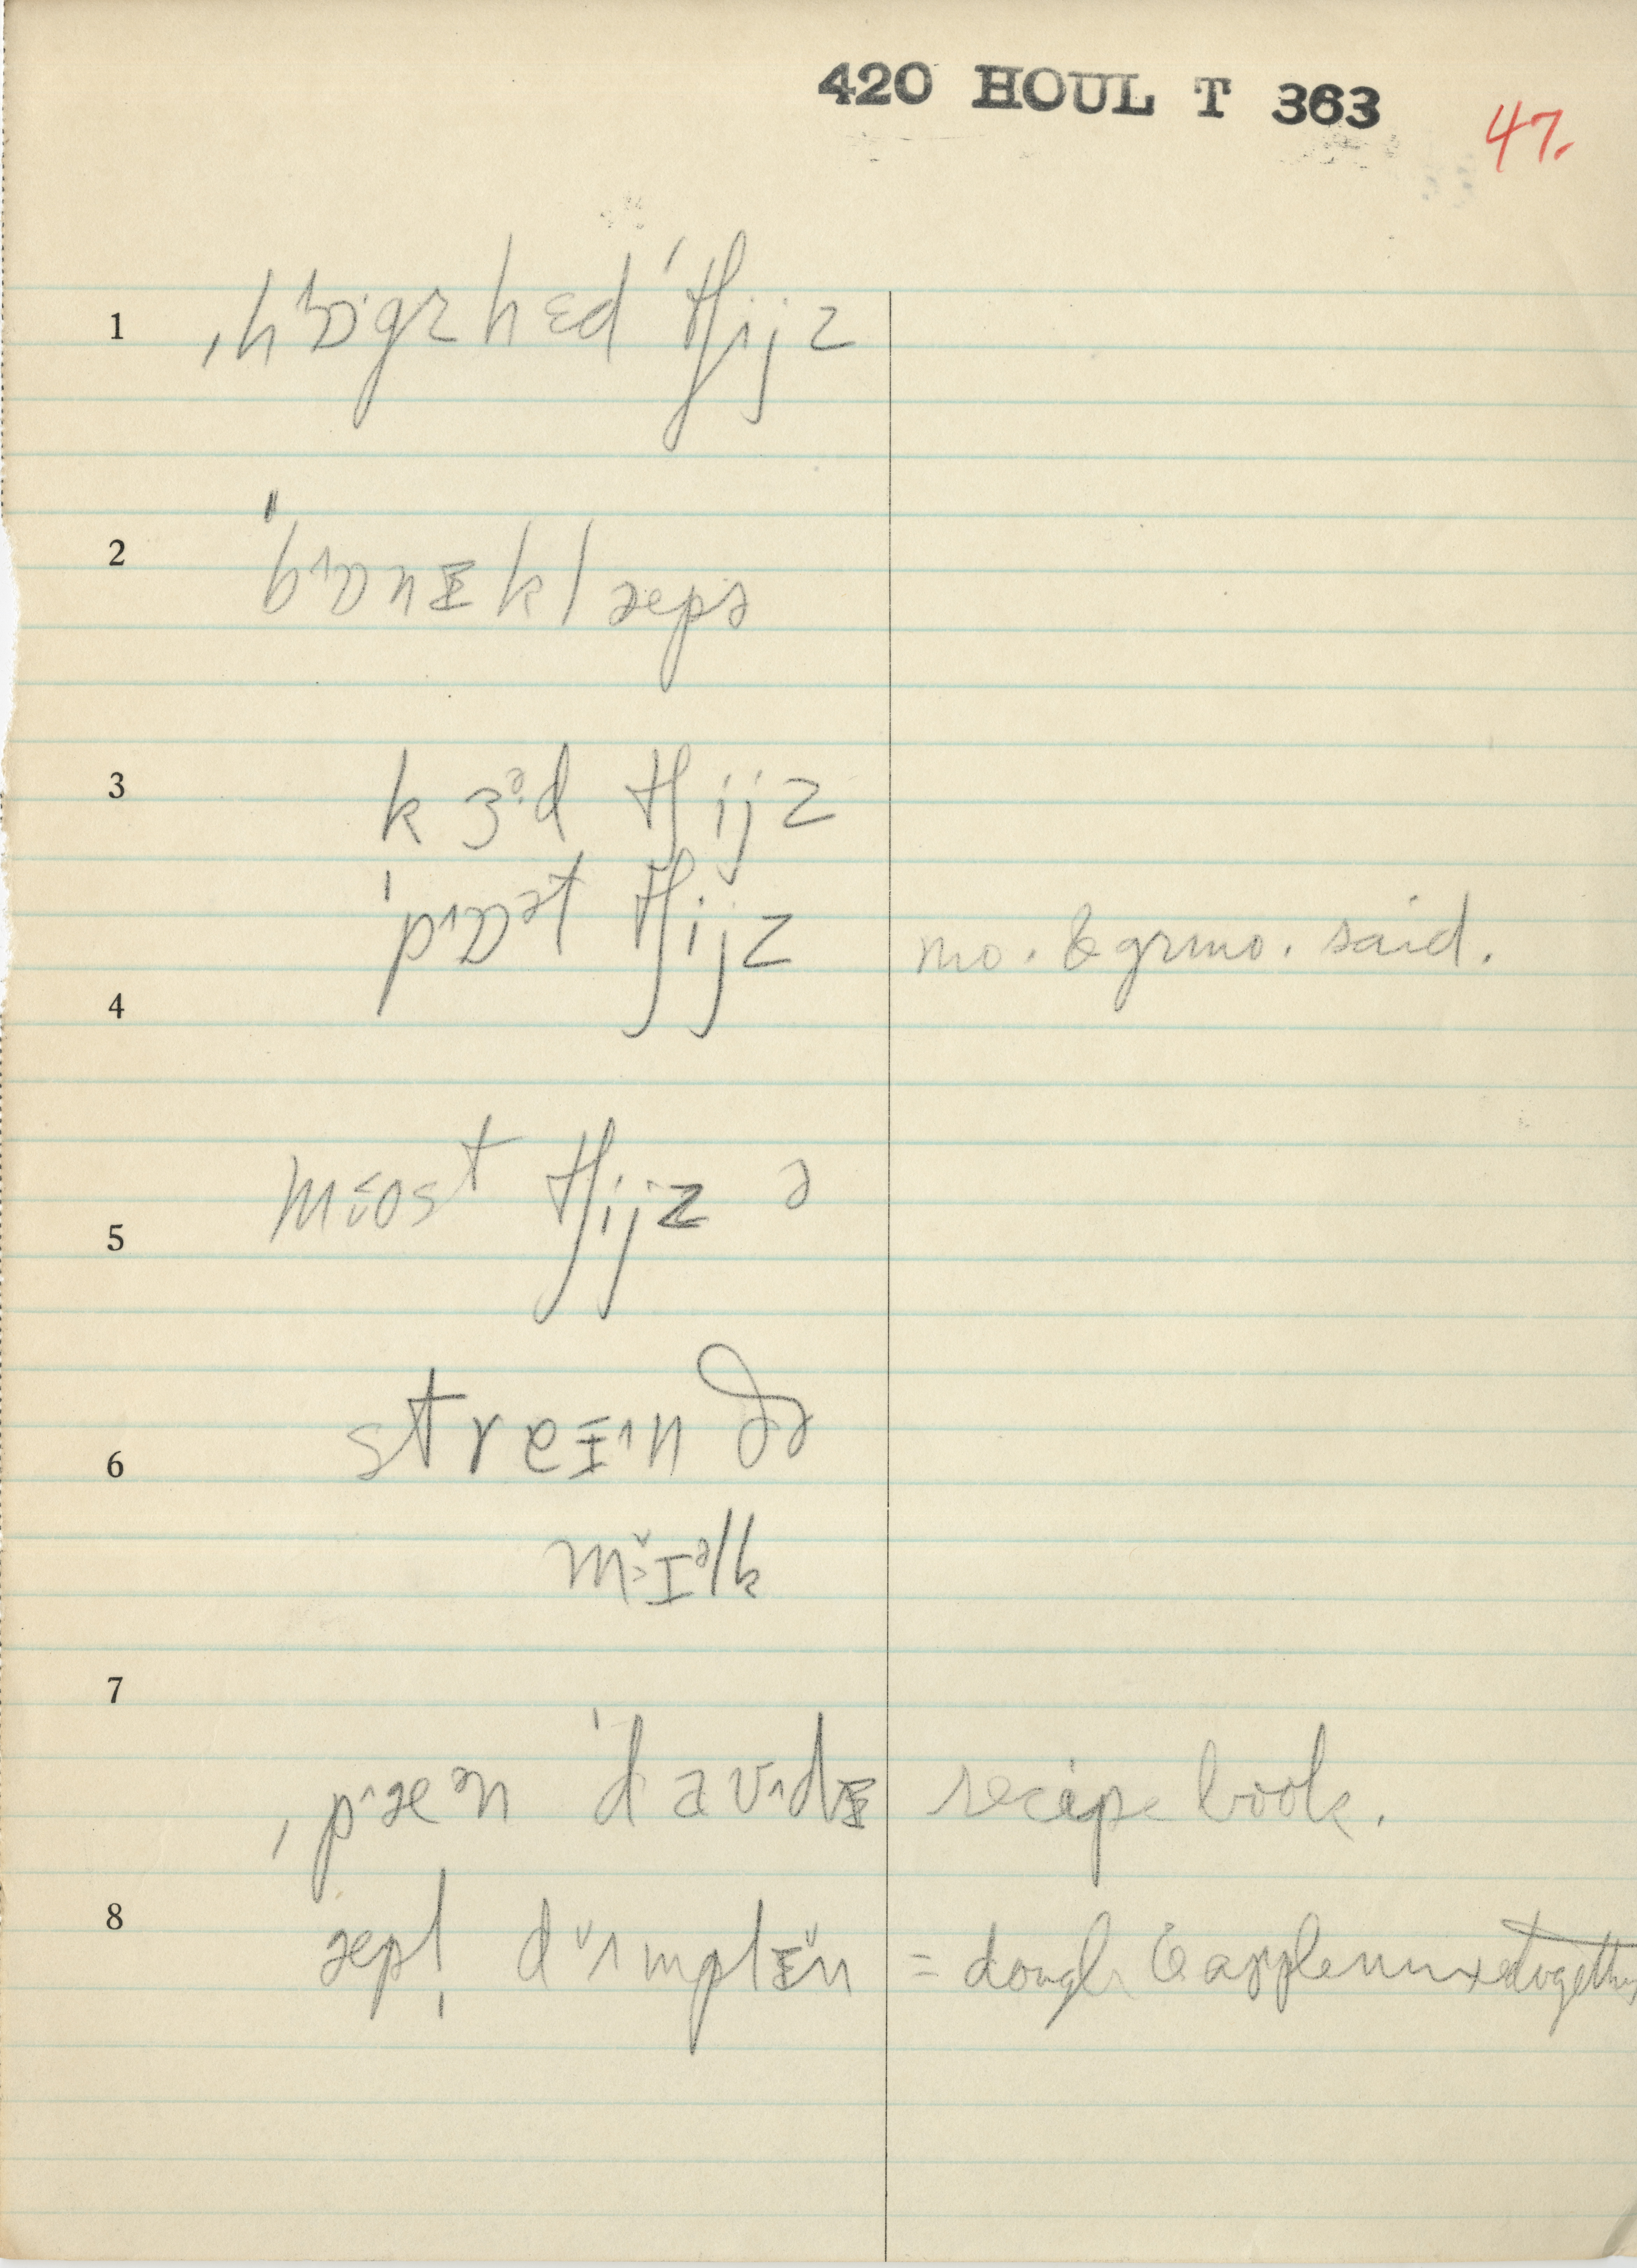 420 HOUL T 363
47.
1 ˌhɒˑgzhɛd ˈtʃijz
2 ˈbɒˑnɪklæpə
3 kɜᵊd tʃijz
ˈpɒˑᵊt tʃijz mo. & grmo. said.
4
5 most tʃijz ə
6 streɪˑn ðə
mɪᵊlk
7
ˌpˑæᵊn ˈdavˑdɪ recipe book.
8 æpl̩ dʌmplɪn = dough & apple mixed together